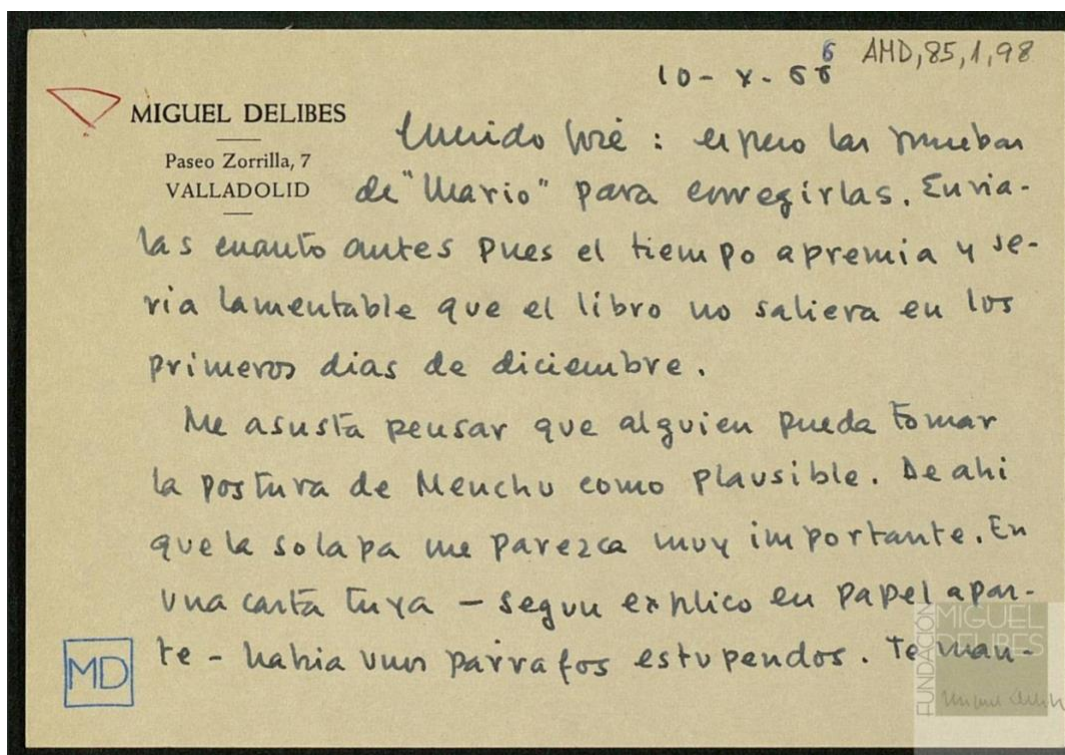 AMD,85,1,98
10-X-66
MIGUEL DELIBES
Paseo Zorrilla, 7
VALLADOLID
Querido José: espero las pruebas
de "Mario" para corregirlas. Envia-
las cuanto antes pues el tiempo apremia y se-
ria lamentable que el libro no saliera en los
primeros dias de diciembre.
Me asusta pensar que alguien pueda tomar
la postura de Menchu como plausible. De ahi
que la solapa me parezca muy importante. En
una carta tuya - segun explico en papel apar-
te - habia unos párrafos estupendos. Te man-
MD
FUNDACIÓN
MIGUEL
DELIBES